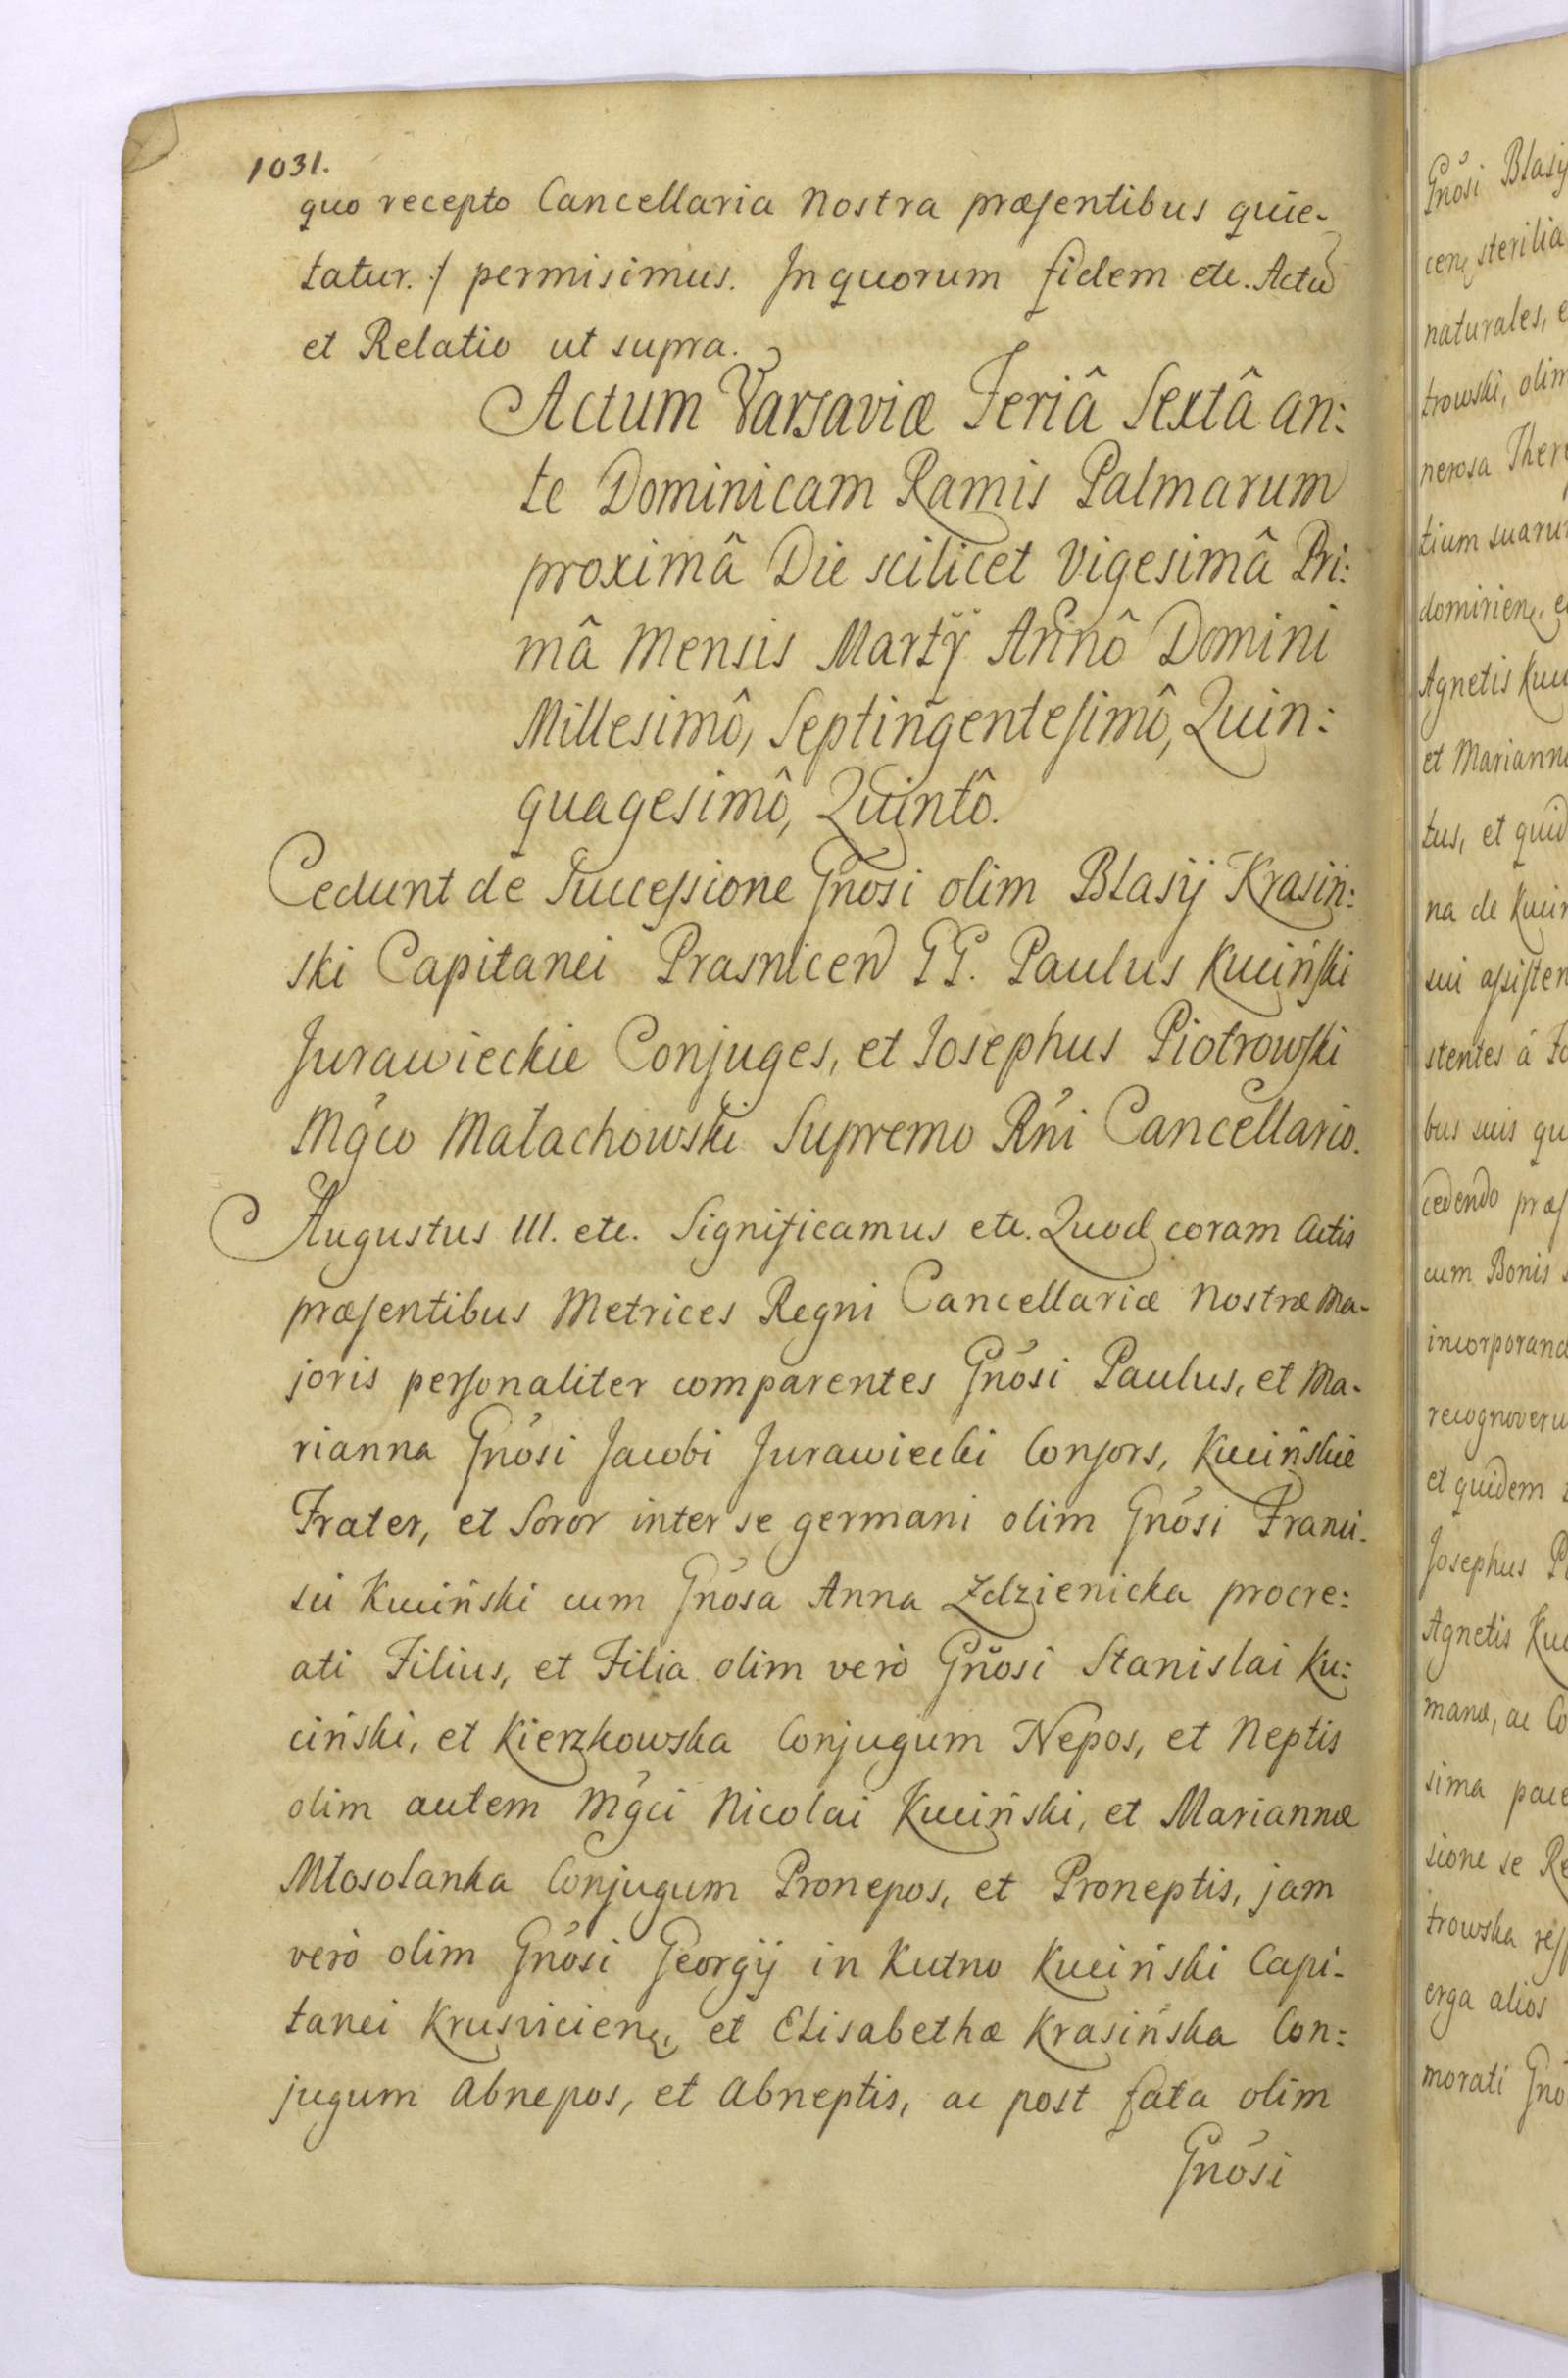 1031.
quo recepto Cancellaria Nostra præsentibus quie-
tatur. / permisimus. In quorum fidem etc. Actũ
et Relatio ut supra.
Actum Varsaviæ Feriâ Sextâ an:
te Dominicam Ramis Palmarum
proximâ Die scilicet Vigesimâ Pri:
mâ Mensis Martÿ Annô Domini
Millesimô, Septingentesimô, Quin:
quagesimô, Quintô.
Cedunt de Successione Gnosi olim Blasÿ Krasiń:
ski Capitanei Prasnicen GG. Paulus Kuciński
Jurawieckie Conjuges, et Josephus Piotrowski
Mgco Małachowski Supremo Rńi Cancellario.
Augustus III. etc. Significamus etc. Quod coram Actis
præsentibus Metrices Regni Cancellariæ Nostræ Ma-
joris personaliter comparentes Gnosi Paulus, et Ma-
rianna Gnosi Jacobi Jurawiecki Consors, Kucińskie
Frater, et Soror inter se germani olim Gnosi Franci-
sci Kuciński cum Gnosa Anna Zdzienicka procre:
ati Filius, et Filia olim verò Gnosi Stanislai Ku:
ciński, et Kierzkowska Conjugum Nepos, et Neptis
olim autem Mgci Nicolai Kuciński, et Mariannæ
Młosolanka Conjugum Pronepos, et Proneptis, jam
verò olim Gnosi Georgÿ in Kutno Kuciński Capi-
tanei Krusvicien, et Elisabethæ Krasińska Con:
jugum Abnepos, et Abneptis, ac post fata olim
Gnosi
Gnosi Blasÿ
cen sterilia
naturales, e
trowski, olim
nerosa Ther
tium suaru
domirien, e
Agnetis Kuci
et Marianna
tus, et quid
na de Kucin
sui assisten
stentes à
bus suis qu
cedendo præs
cum Bonis
incorporand
recognoveru
et quidem
Josephus P
Agnetis Kuc
manæ, ac Co
sima pace
sione se Re
trowska
erga alios
morati Gno